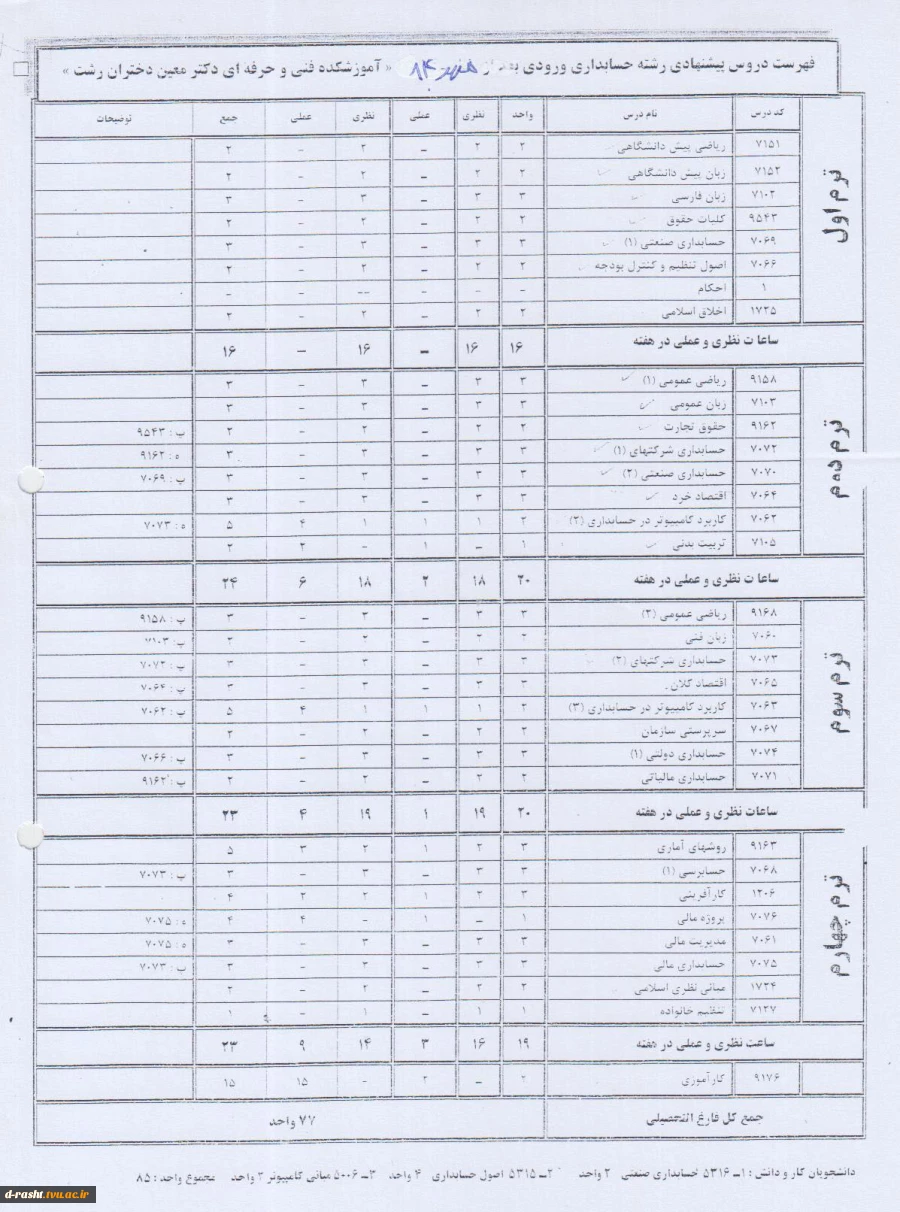 فهرست دروس پیشنهادی رشته حسابداری ورودی بعد از مهر ۸۴ « آموزشکده فنی و حرفه ای دکتر معین دختران رشت »
کد درس نام درس واحد نظری عملی نظری عملی جمع توضیحات
ترم اول
۷۱۵۱ ریاضی پیش دانشگاهی ۲ ۲ - ۲ - ۲
۷۱۵۲ زبان پیش دانشگاهی ۲ ۲ - ۲ - ۲
۷۱۰۲ زبان فارسی ۳ ۳ - ۳ - ۳
۹۵۴۳ کلیات حقوق ۲ ۲ - ۲ - ۲
۷۰۶۹ حسابداری صنعتی (۱) ۳ ۳ - ۳ - ۳
۷۰۶۶ اصول تنظیم و کنترل بودجه ۲ ۲ - ۲ - ۲
۱ احکام - - - -- - -
۱۷۲۵ اخلاق اسلامی ۲ ۲ - ۲ - ۲
ساعات نظری و عملی در هفته ۱۶ ۱۶ - ۱۶ - ۱۶
ترم دوم
۹۱۵۸ ریاضی عمومی (۱) ۳ ۳ - ۳ - ۳
۷۱۰۳ زبان عمومی ۳ ۳ - ۳ - ۳
۹۱۶۲ حقوق تجارت ۲ ۲ - ۲ - ۲ پ : ۹۵۴۳
۷۰۷۲ حسابداری شرکتهای (۱) ۳ ۳ - ۳ - ۳ ه : ۹۱۶۲
۷۰۷۰ حسابداری صنعتی (۲) ۳ ۳ - ۳ - ۳ پ : ۷۰۶۹
۷۰۶۴ اقتصاد خرد ۳ ۳ - ۳ - ۳
۷۰۶۲ کاربرد کامپیوتر در حسابداری (۲) ۲ ۱ ۱ ۱ ۴ ۵ ه : ۷۰۷۳
۷۱۰۵ تربیت بدنی ۱ - ۱ - ۲ ۲
ساعات نظری و عملی در هفته ۲۰ ۱۸ ۲ ۱۸ ۶ ۲۴
ترم سوم
۹۱۶۸ ریاضی عمومی (۲) ۳ ۳ - ۳ - ۳ پ : ۹۱۵۸
۷۰۶۰ زبان فنی ۲ ۲ - ۲ - ۲ پ : ۷۱۰۳
۷۰۷۳ حسابداری شرکتهای (۲) ۳ ۳ - ۳ - ۳ پ : ۷۰۷۲
۷۰۶۵ اقتصاد کلان ۳ ۳ - ۳ - ۳ پ : ۷۰۶۴
۷۰۶۳ کاربرد کامپیوتر در حسابداری (۳) ۲ ۱ ۱ ۱ ۴ ۵ پ : ۷۰۶۲
۷۰۶۷ سرپرستی سازمان ۲ ۲ - ۲ - ۲
۷۰۷۴ حسابداری دولتی (۱) ۳ ۳ - ۳ - ۳ پ : ۷۰۶۶
۷۰۷۱ حسابداری مالیاتی ۲ ۲ - ۲ - ۲ پ : ۹۱۶۲
ساعات نظری و عملی در هفته ۲۰ ۱۹ ۱ ۱۹ ۴ ۲۳
ترم چهارم
۹۱۶۳ روشهای آماری ۳ ۲ ۱ ۲ ۳ ۵
۷۰۶۸ حسابرسی (۱) ۳ ۳ - ۳ - ۳ پ : ۷۰۷۳
۱۲۰۶ کارآفرینی ۳ ۲ ۱ ۲ ۲ ۴
۷۰۷۶ پروژه مالی ۱ - ۱ - ۴ ۴ ه : ۷۰۷۵
۷۰۶۱ مدیریت مالی ۳ ۳ - ۳ - ۳ ه : ۷۰۷۵
۷۰۷۵ حسابداری مالی ۳ ۳ - ۳ - ۳ پ : ۷۰۷۳
۱۷۲۴ مبانی نظری اسلامی ۲ ۲ - ۲ - ۲
۷۱۲۷ تنظیم خانواده ۱ ۱ - ۱ - ۱
ساعت نظری و عملی در هفته ۱۹ ۱۶ ۳ ۱۴ ۹ ۲۳
۹۱۷۶ کارآموزی ۲ - ۲ - ۱۵ ۱۵
جمع کل فارغ التحصیلی ۷۷ واحد
دانشجویان کار و دانش : ۱ـ ۵۳۱۶ حسابداری صنعتی ۲ واحد ۲ـ ۵۳۱۵ اصول حسابداری ۴ واحد ۳ـ ۵۰۰۶ مبانی کامپیوتر ۲ واحد مجموع واحد : ۸۵
d-rasht.tvu.ac.ir